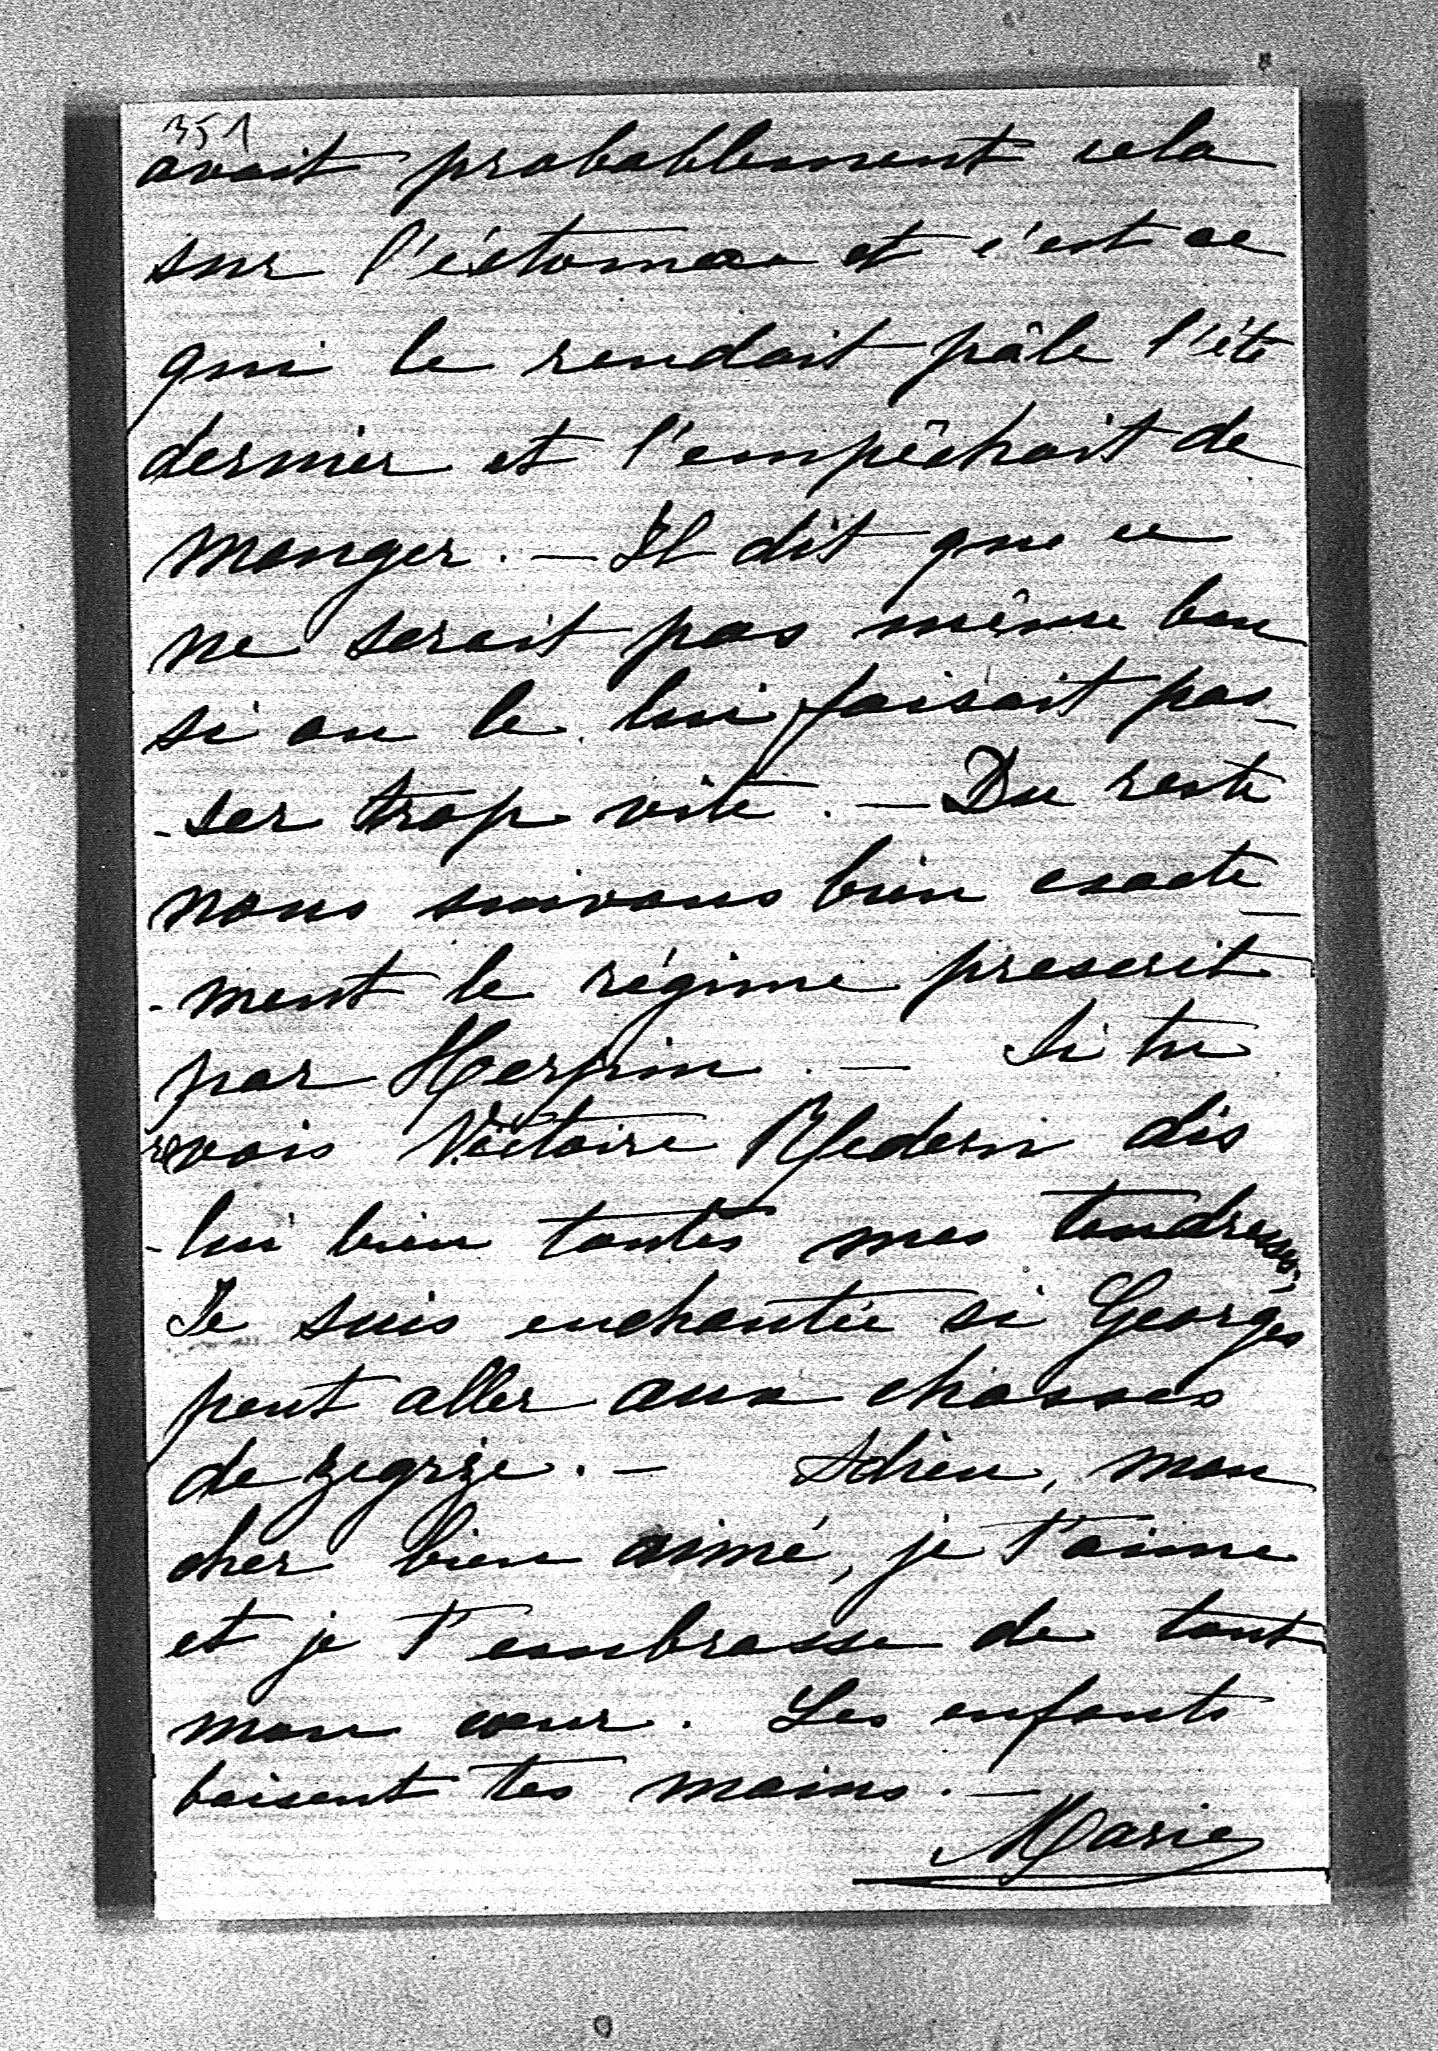 351
avait probablement cela
sur l'éstomac et c'est ce
qui le rendait pâle l'été
dernier et l'empêchait de
manger. — Il dit que ce
ne serait pas même bon
si on le lui faisait pas-
-ser trop vite. — Du reste
nous suivons bien exacte-
-ment le régime prescrit
par Herpin. — Si tu
revois Victoire Redern dis
-lui bien toutes mes tendresses,
Je suis enchantée si Georges
peut aller aux chasses
de Zegrże. — Adieu, mon
cher bien aimé, je t'aime
et je t'embrasse de tout
mon cœur. Les enfants
baisent tes mains. —
Marie